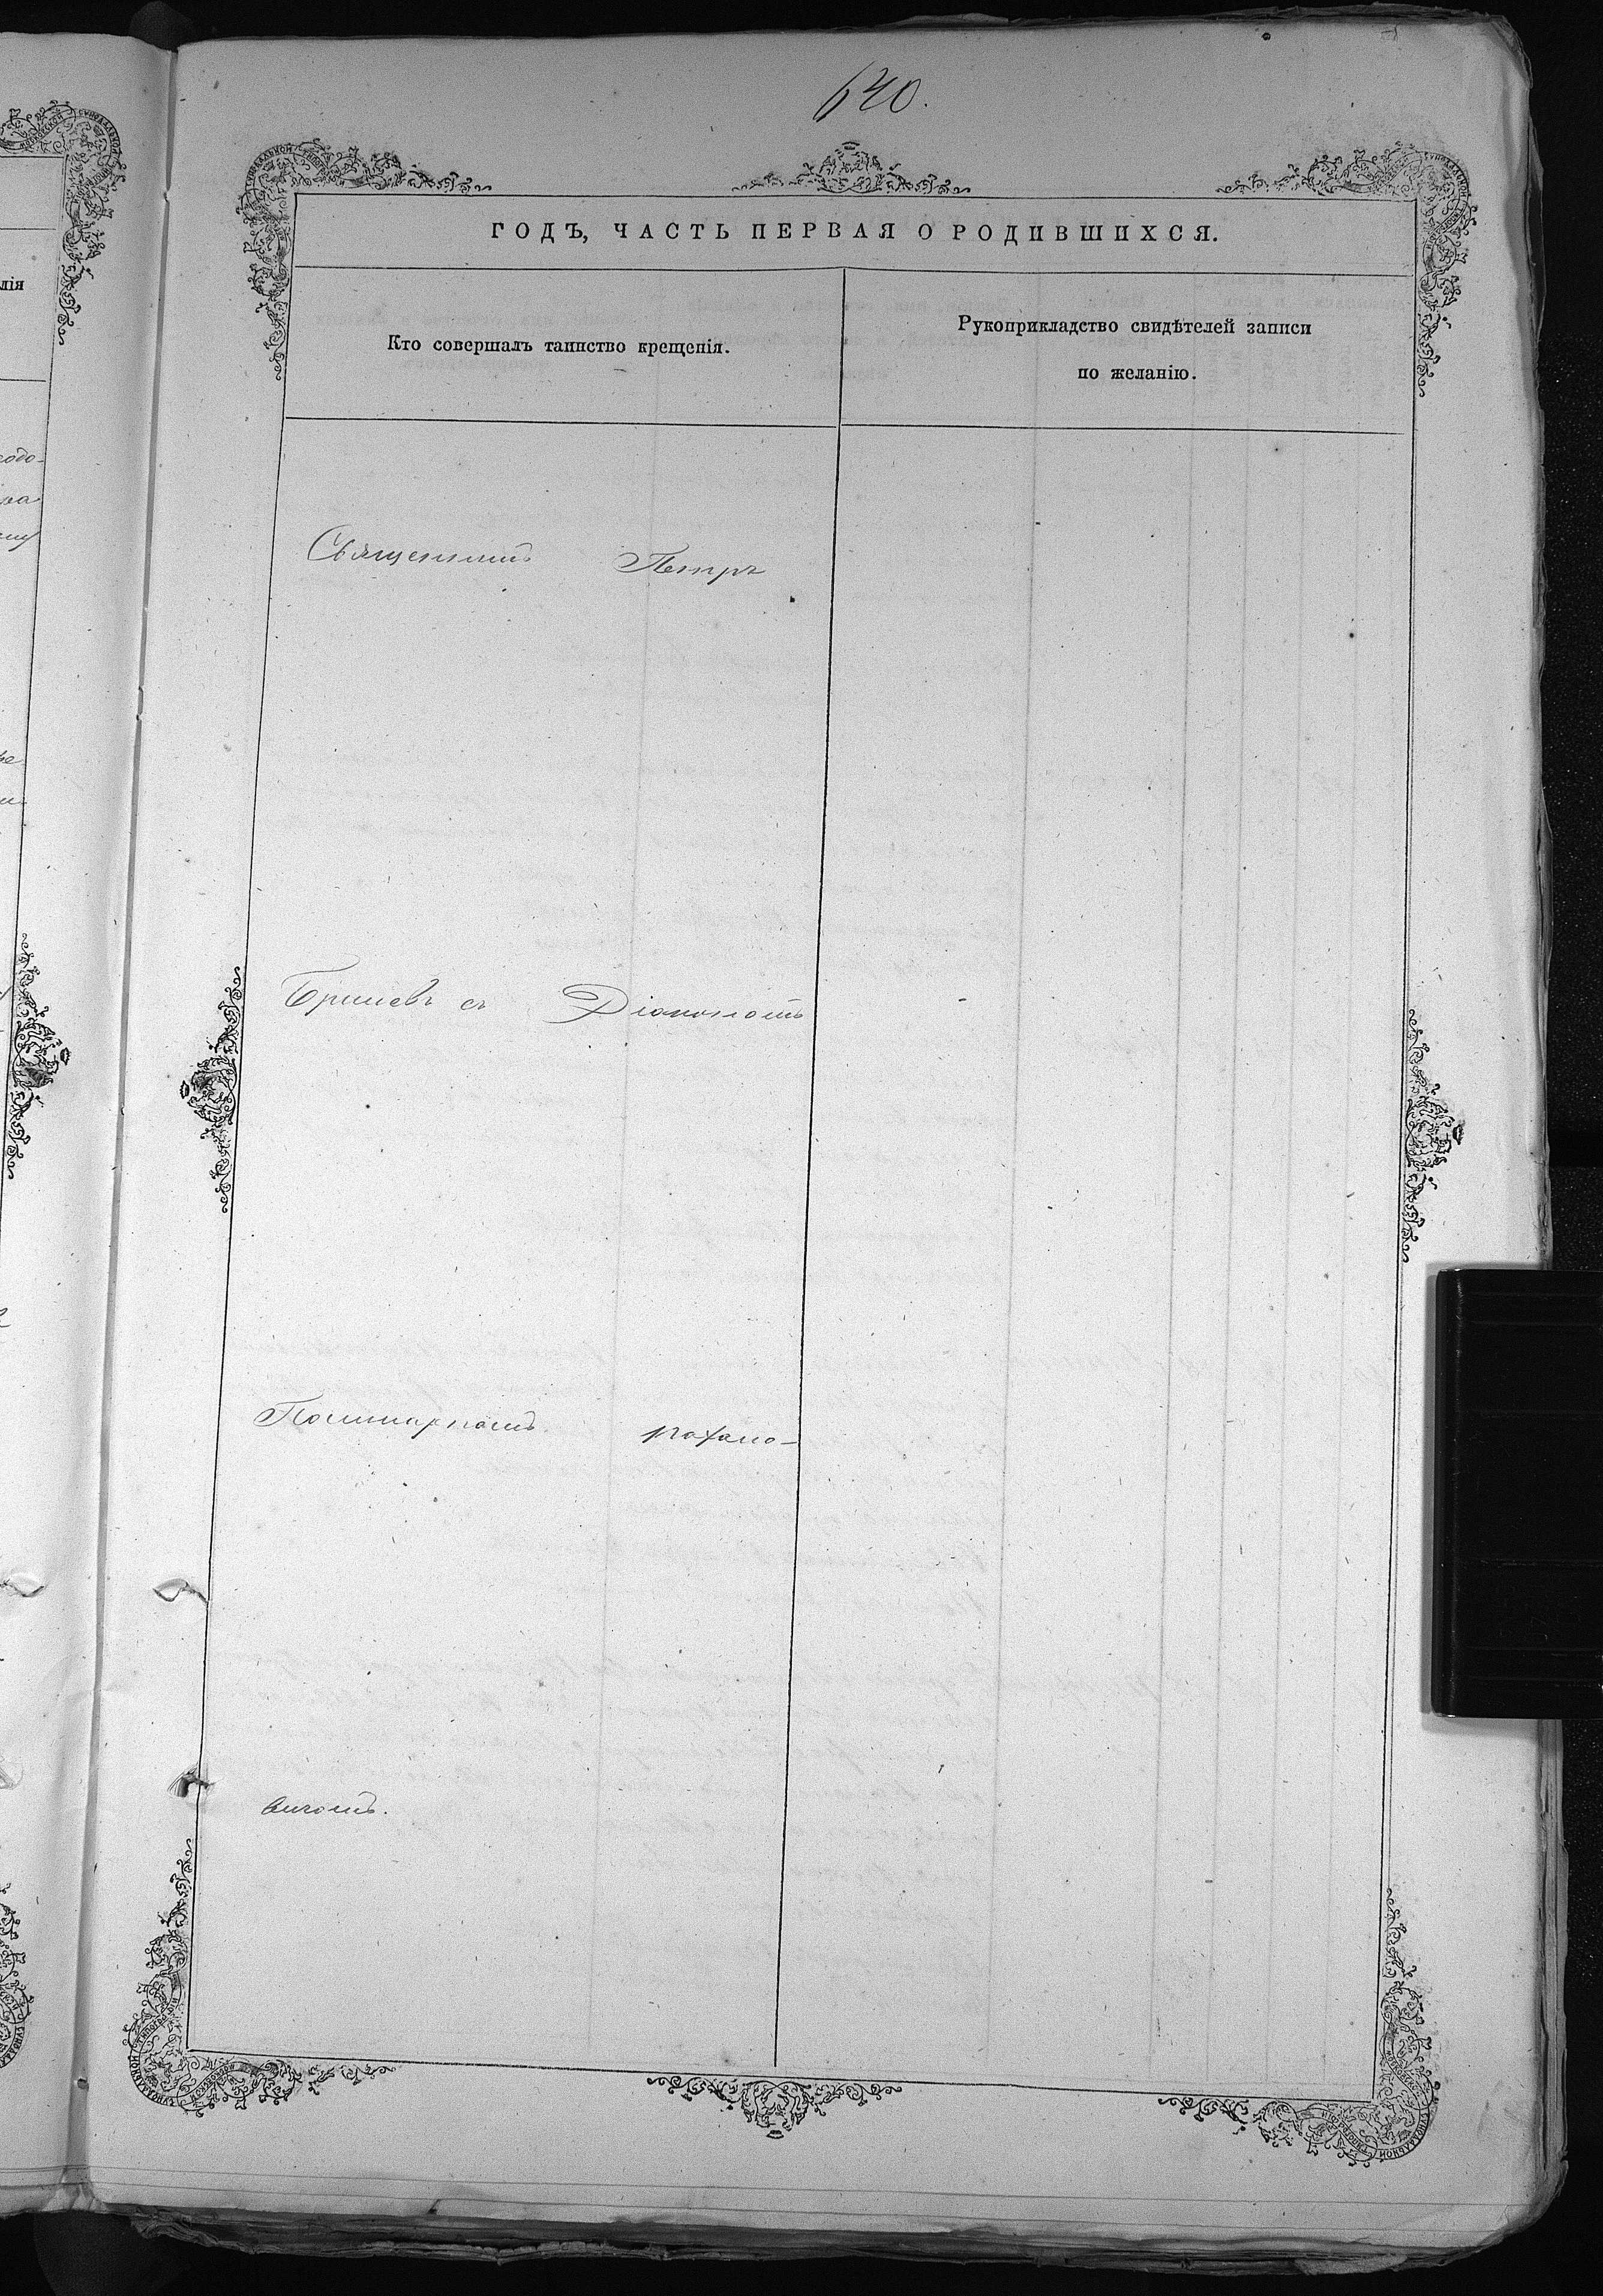 640.
ГОДЪ, ЧАСТЬ ПЕРВАЯ О РОДИВШИХСЯ.
Кто совершалъ таинство крещенія.
Рукоприкладство свидѣтелей записи
по желанію.
Священникъ Петръ
съ Діакономъ
вичомъ.